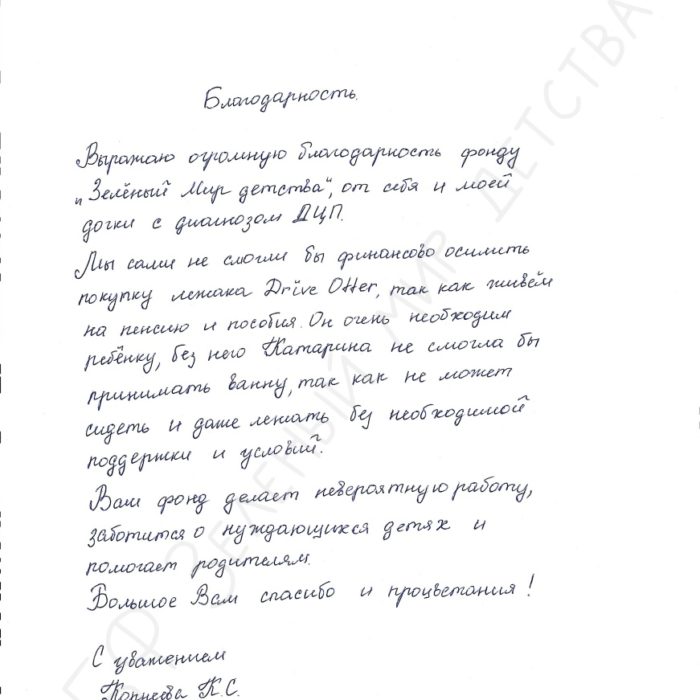 Благодарность.
Выражаю огромную благодарность фонду
„Зелёный Мир детства“, от себя и моей
дочки с диагнозом ДЦП.
Мы сами не смогли бы финансово осилить
покупку лежака Drive Otter, так как живём
на пенсию и пособия. Он очень необходим
ребёнку, без него Катарина не смогла бы
принимать ванну, так как не может
сидеть и даже лежать без необходимой
поддержки и условий.
Ваш фонд делает невероятную работу,
заботится о нуждающихся детях и
помогает родителям.
Большое Вам спасибо и процветания!
С уважением
К.С.
БФ ЗЕЛЕНЫЙ МИР ДЕТСТВА